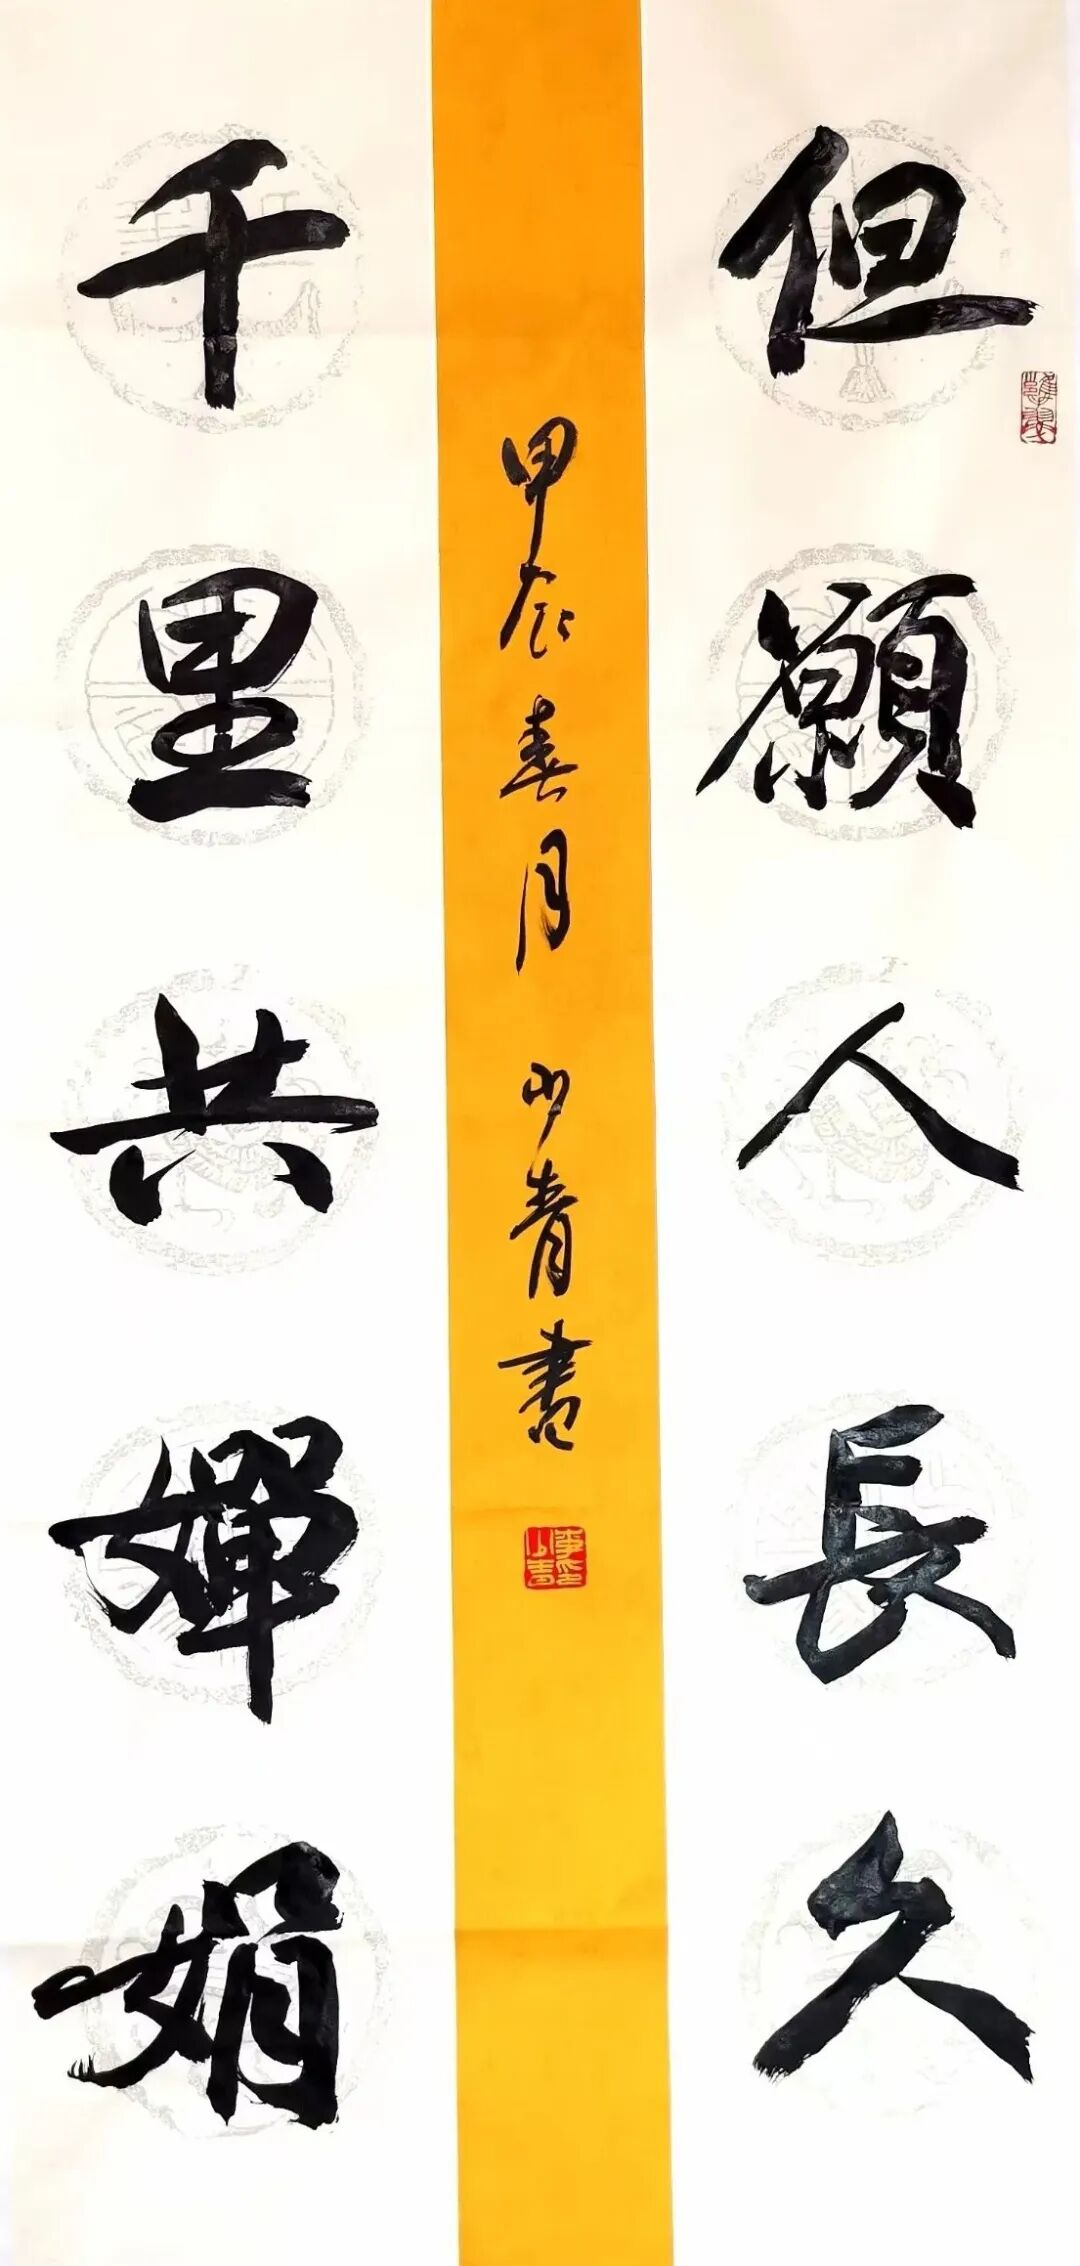 但願人長久
千里共嬋娟
甲辰春月 少青書